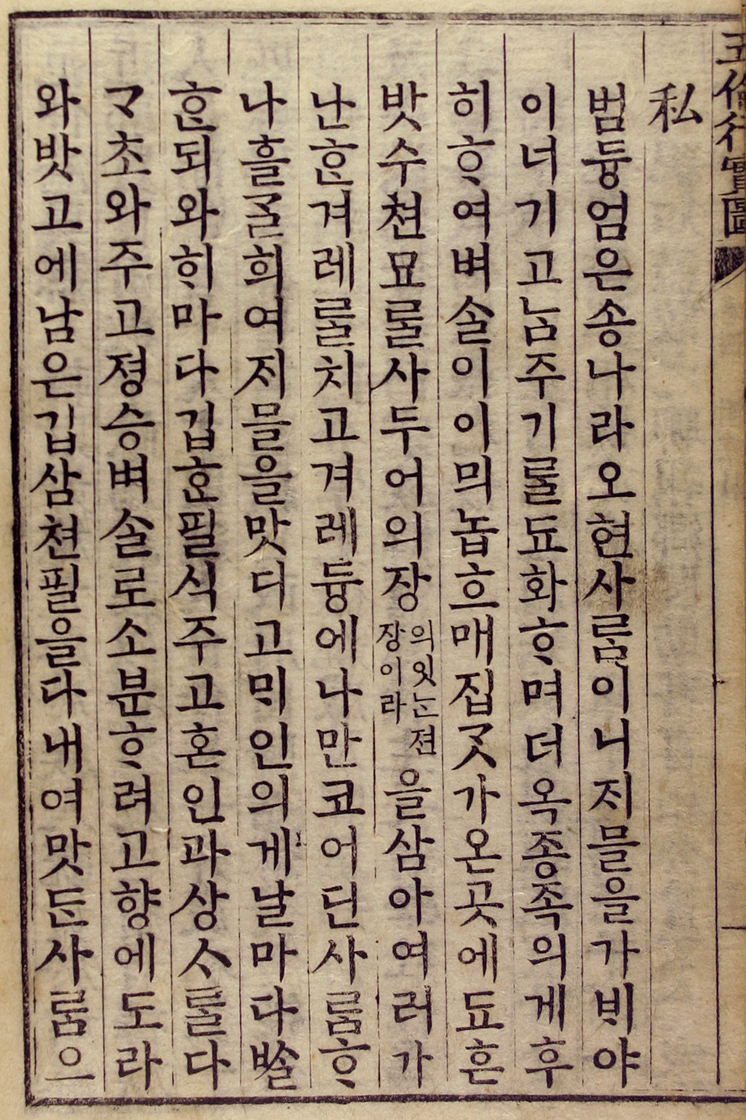 五倫行實圖
私
범듕엄은송나라오현사ᄅᆞᆷ이니ᄌᆡ믈을가ᄇᆡ야
이너기고ᄂᆞᆷ주기ᄅᆞᆯ됴화ᄒᆞ며더옥종족의게후
히ᄒᆞ여벼솔이이믜놉흐매집ᄀᆞᆺ가온곳에됴흔
밧수쳔묘ᄅᆞᆯ사두어의장의잇ᄂᆞᆫ젼장이라을삼아여러가
난ᄒᆞᆫ겨레ᄅᆞᆯ치고겨레듕에나만코어딘사ᄅᆞᆷᄒᆞ
나흘ᄀᆞᆯ희여ᄌᆡ믈을맛디고ᄆᆡ인의게날마다ᄡᆞᆯ
ᄒᆞᆫ되와ᄒᆡ마다깁ᄒᆞᆫ필식주고혼인과상ᄉᆞᄅᆞᆯ다
ᄀᆞ초와주고졍승벼솔로소분ᄒᆞ려고향에도라
와밧고에남은깁삼쳔필을다내여맛ᄃᆞᆫ사ᄅᆞᆷ으